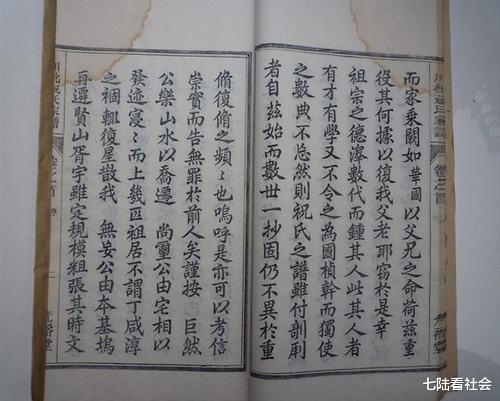 而家乘闕如 華國 以父兄之命荷茲重
役其何據以復我父老耶窃於是幸
祖宗之德澤數代而鍾其人此其人者
有才有學又不令之為國楨幹而獨使
之數典不忘然則祝氏之譜雖付剞劂
者自茲始而數世一抄固仍不異於重
脩復脩之頻〻也嗚呼是亦可以考信
崇實而告無罪於前人矣謹按 巨然
公樂山水以喬遷 尚璽公由宅相以
發迹寖〻而上幾叵祖居不謂丁咸淳
之禍輙復星散我 無妄公由本基塢
再遷賢山胥宇雖定規模粗張其時文
卷之首
七陆看社会